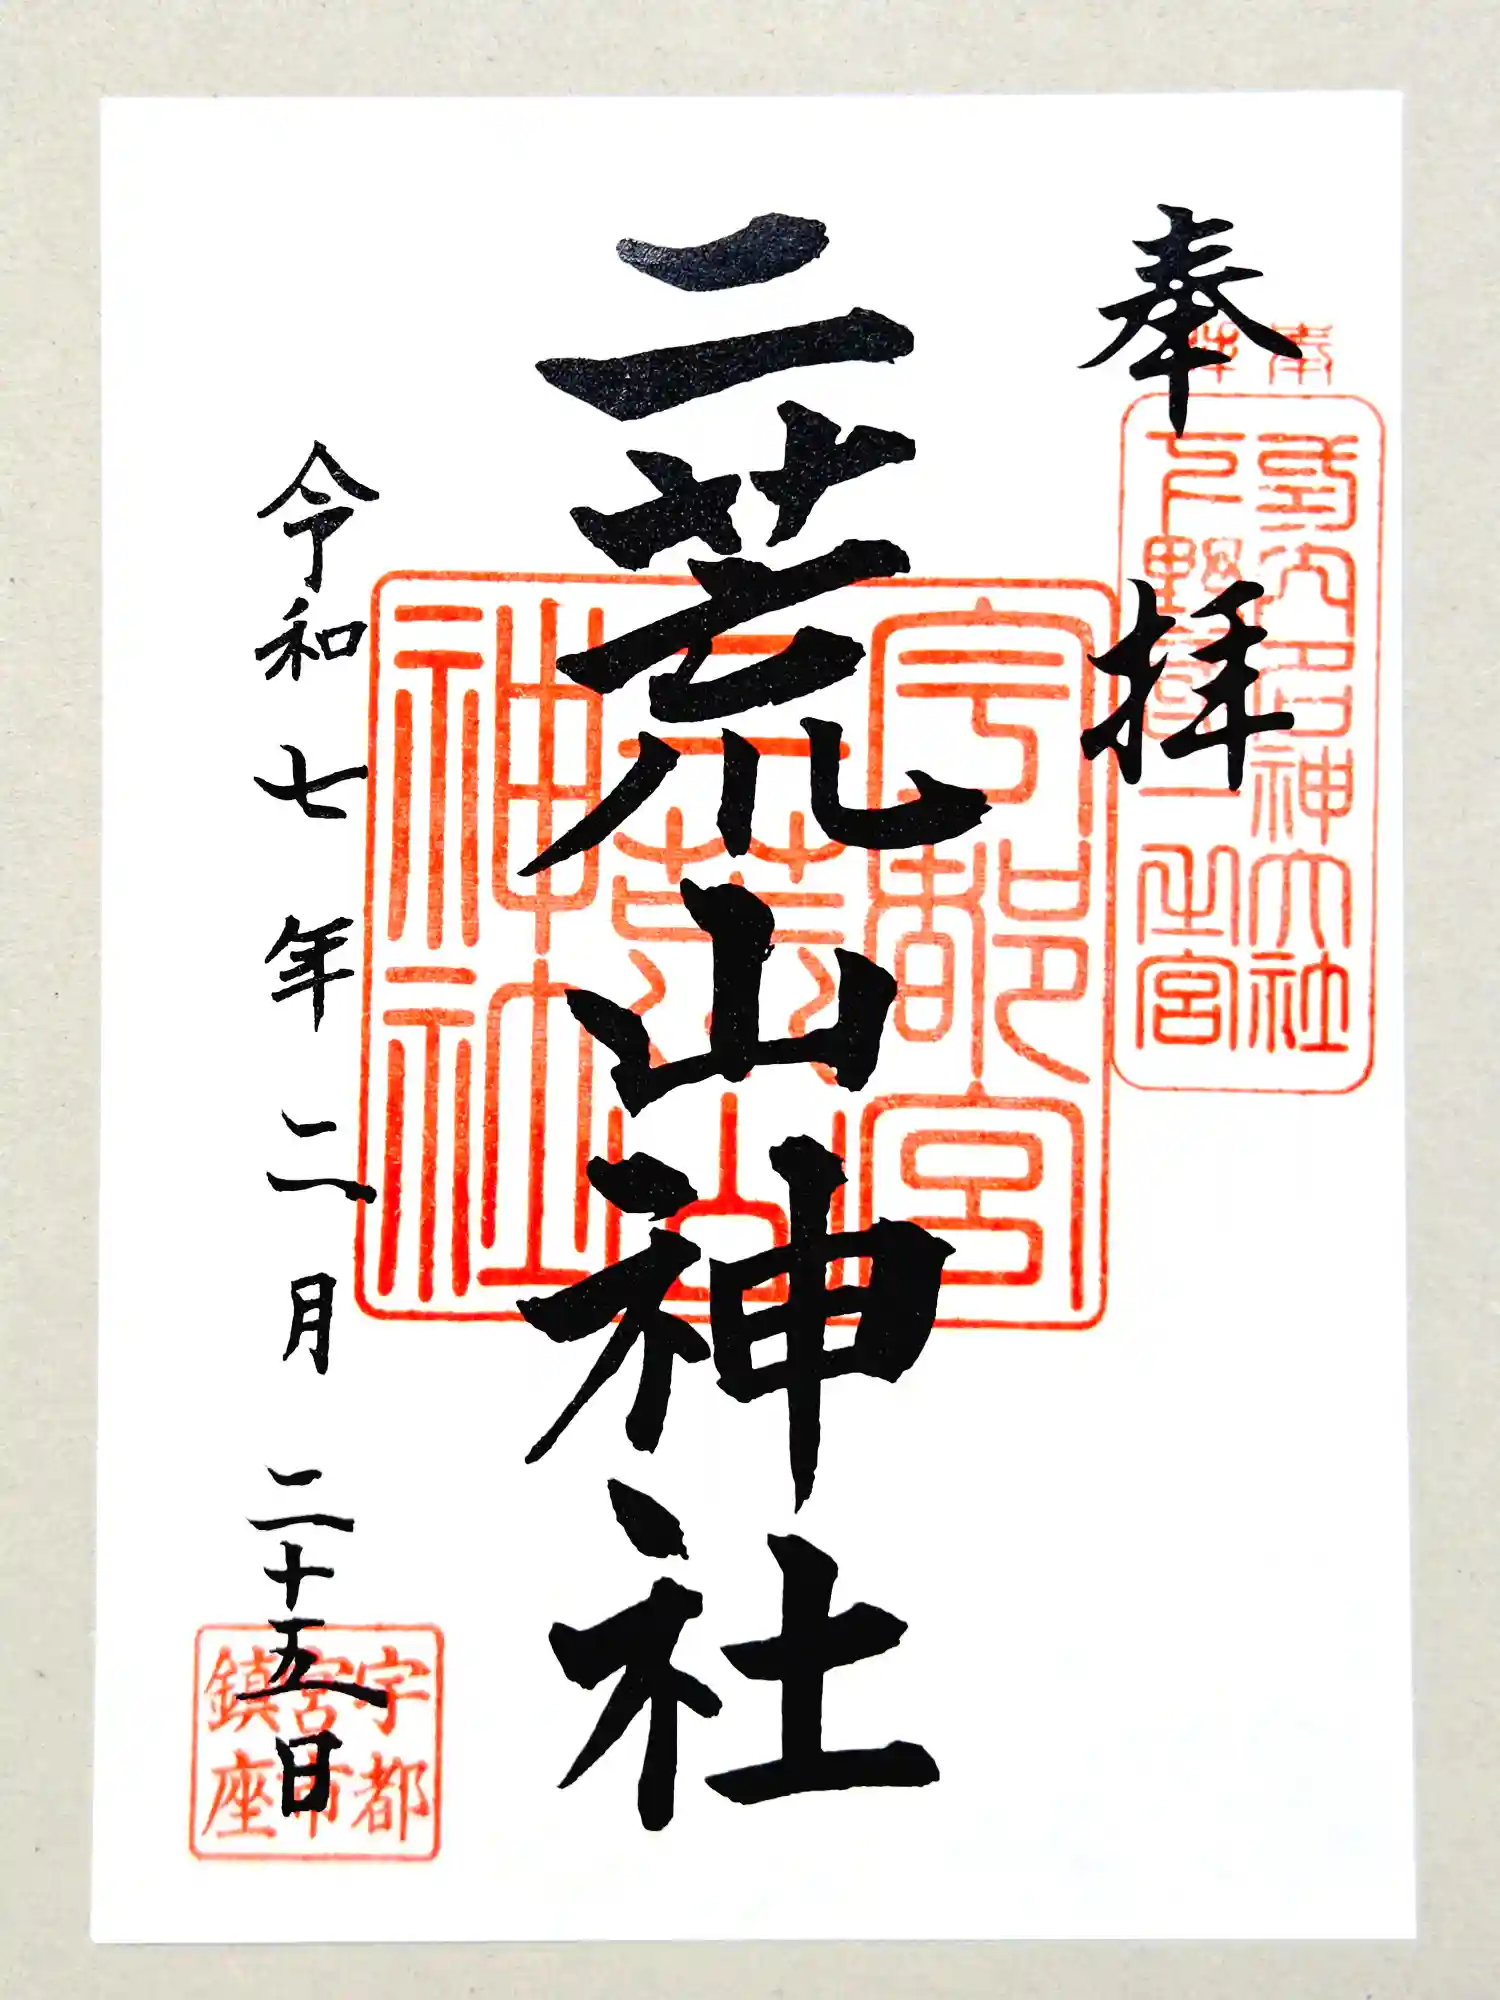 奉拝
奉拝
式内名神大社
下野國一之宮
二荒山神社
宇都宮
二荒山
神社
令和七年二月二十五日
宇都
宮市
鎮座